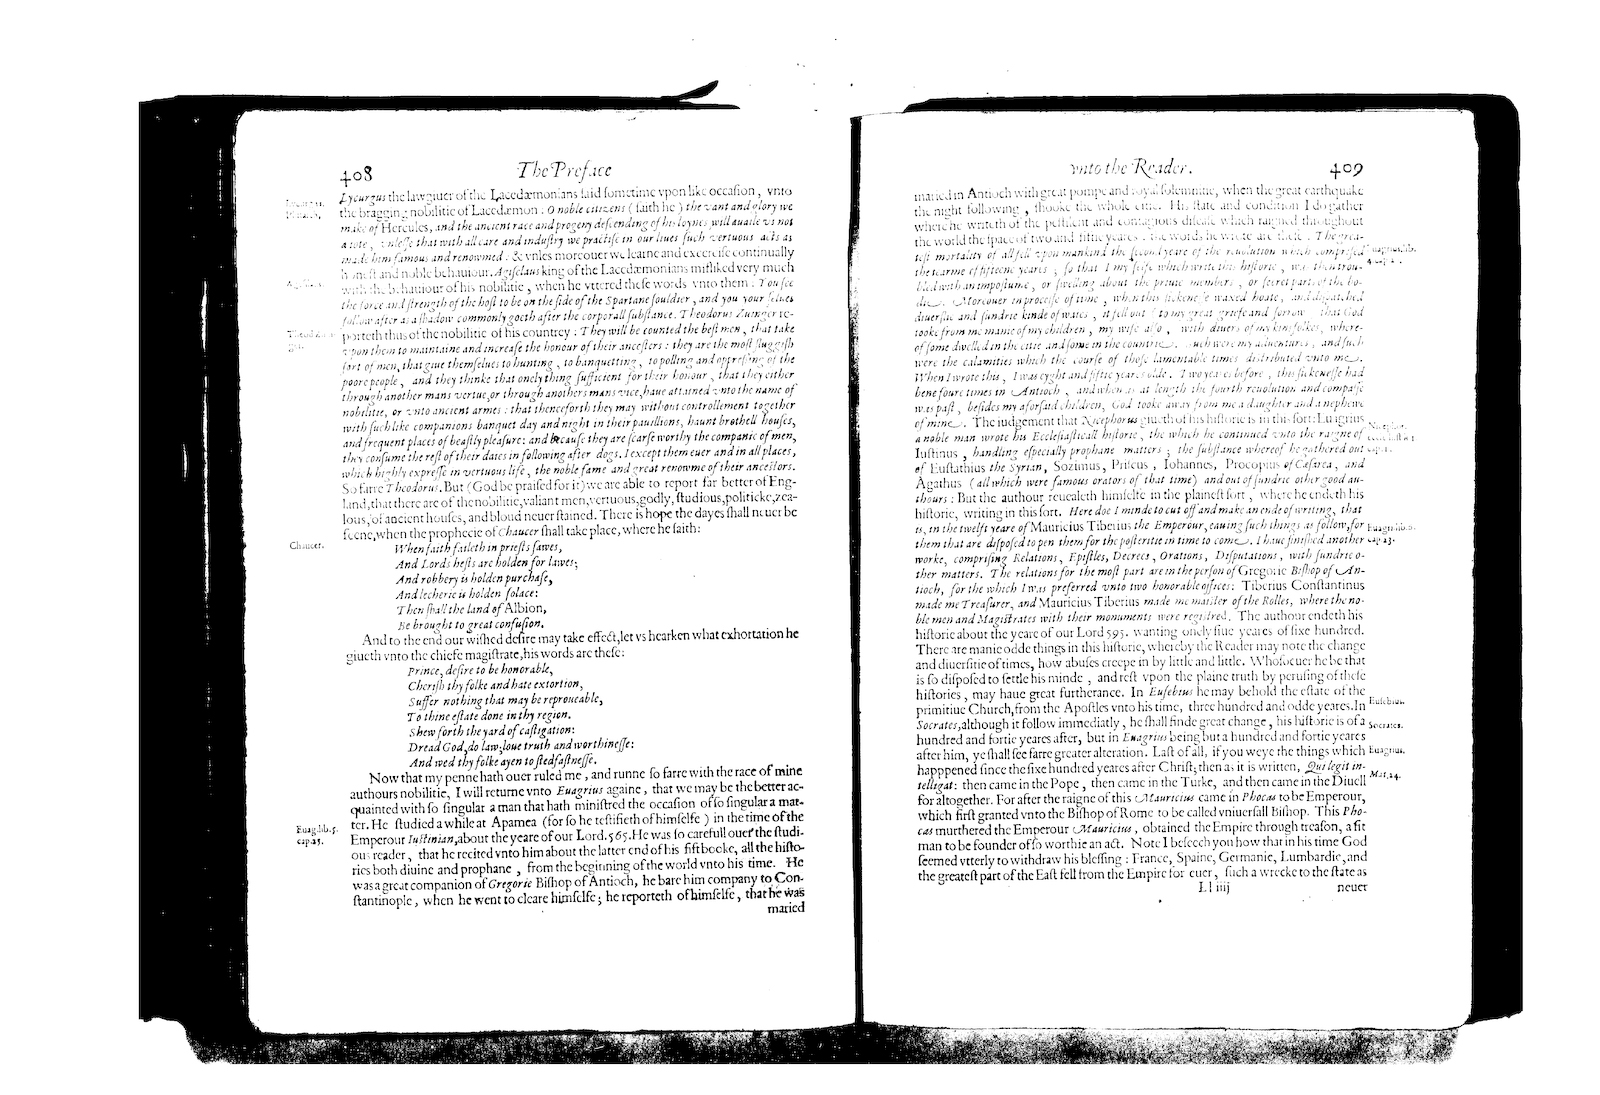 408
The Preface
Lycurgus the lawgiuer of the Lacedæmonians said sometime vpon like occasion, vnto
the bragging nobilitie of Lacedæmon: O noble citizens (saith he) the vant and glory we
make of Hercules, and the ancient race and progeny descending of his loynes, will auaile vs not
a iote, vnlesse that with all care and industry we practise in our liues such vertuous acts as
made him famous and renowmed: & vnles moreouer we learne and exercise continually
honest and noble behauiour. Agesilaus king of the Lacedæmonians misliked very much
with the behauiour of his nobilitie, when he vttered these words vnto them: You see
the force and strength of the host to be on the side of the Spartane souldier, and you your selues
follow after as a shadow commonly goeth after the corporall substance. Theodorus Zuinger re-
porteth thus of the nobilitie of his countrey: They will be counted the best men, that take
vpon them to maintaine and increase the honour of their ancesters: they are the most sluggish
sort of men, that giue themselues to hunting, to banquetting, to polling and oppressing of the
poore people, and they thinke that onely thing sufficient for their honour, that they either
through another mans vertue, or through anothers mans vice, haue attained vnto the name of
nobilitie, or vnto ancient armes: that thenceforth they may without controllement together
with such like companions banquet day and night in their pauilions, haunt brothell houses,
and frequent places of beastly pleasure: and because they are scarse worthy the companie of men,
they consume the rest of their daies in following after dogs. I except them euer and in all places,
which highly expresse in vertuous life, the noble fame and great renowme of their ancestors.
So farre Theodorus. But (God be praised for it) we are able to report far better of Eng-
land, that there are of the nobilitie, valiant men, vertuous, godly, studious, politicke, zea-
lous, of ancient houses, and bloud neuer stained. There is hope the dayes shall neuer be
seene, when the prophecie of Chaucer shall take place, where he saith:
Chaucer.
When faith faileth in priests sawes,
And Lords hests are holden for lawes;
And robbery is holden purchase,
And lecherie is holden solace:
Then shall the land of Albion,
Be brought to great confusion.
And to the end our wished desire may take effect, let vs hearken what exhortation he
giueth vnto the chiefe magistrate, his words are these:
Prince, desire to be honorable,
Cherish thy folke and hate extortion,
Suffer nothing that may be reproueable,
To thine estate done in thy region.
Shew forth the yard of castigation:
Dread God, do law, loue truth and worthinesse:
And wed thy folke ayen to stedfastnesse.
Now that my penne hath ouer ruled me, and runne so farre with the race of mine
authours nobilitie, I will returne vnto Euagrius againe, that we may be the better ac-
quainted with so singular a man that hath ministred the occasion of so singular a mat-
ter. He studied a while at Apamea (for so he testifieth of himselfe) in the time of the
Euag. lib. 5.
cap. 23.
Emperour Iustinian, about the yeare of our Lord. 565. He was so carefull ouer the studi-
ous reader, that he recited vnto him about the latter end of his fift booke, all the histo-
ries both diuine and prophane, from the beginning of the world vnto his time. He
was a great companion of Gregorie Bishop of Antioch, he bare him company to Con-
stantinople, when he went to cleare himselfe; he reporteth of himselfe, that he was
maried
vnto the Reader.
409
maried in Antioch with great pompe and royal solemnitie, when the great earthquake
the night following, shooke the whole citie. His state and condition I do gather
where he writeth of the pestilent and contagious disease which raigned throughout
the world the space of two and fiftie yeares: the words he wrote are these: The grea-
test mortality of all fell vpon mankind the second yeare of the reuolution which comprised
the tearme of fifteene yeares; so that I my selfe which write this historie, was then trou-
bled with an impostume, or swelling about the priuie members, or secret part of the bo-
die. Moreouer in processe of time, when this sickenesse waxed hoate, and dispatched
diuerse and sundrie kinde of waies, it fell out to my great griefe and sorrow that God
tooke from me manie of my children, my wife also, with diuers of my kinsfolkes, where-
of some dwelled in the citie and some in the countrie. Such were my aduentures, and such
were the calamities which the course of those lamentable times distributed vnto me.
When I wrote this, I was eyght and fiftie yeares olde. Two yeares before, this sickenesse had
bene foure times in Antioch, and when as at length the fourth reuolution and compasse
was past, besides my aforsaid children, God tooke away from me a daughter and a nephewe
of mine. The iudgement that Nicephorus giueth of his historie is in this sort: Euagrius
a noble man wrote his Ecclesiasticall historie, the which he continued vnto the raigne of
Iustinus, handling especially prophane matters; the substance whereof he gathered out
of Eustathius the Syrian, Sozimus, Priscus, Iohannes, Procopius of Cæsarea, and
Agathus (all which were famous orators of that time) and out of sundrie other good au-
thours: But the authour reuealeth himselfe in the plainest sort, where he endeth his
historie, writing in this sort. Here doe I minde to cut off and make an ende of writing, that
is, in the twelft yeare of Mauricius Tiberius the Emperour, leauing such things as follow, for
Euagr. lib. 6.
cap. 23.
them that are disposed to pen them for the posteritie in time to come. I haue finished another
worke, comprising Relations, Epistles, Decrees, Orations, Disputations, with sundrie o-
ther matters. The relations for the most part are in the person of Gregorie Bishop of An-
tioch, for the which I was preferred vnto two honorable offices: Tiberius Constantinus
made me Treasurer, and Mauricius Tiberius made me maister of the Rolles, where the no-
ble men and Magistrates with their monuments were registred. The authour endeth his
historie about the yeare of our Lord 595. wanting onely fiue yeares of sixe hundred.
There are manie odde things in this historie, whereby the Reader may note the change
and diuersitie of times, how abuses creepe in by little and little. Whosoeuer he be that
is so disposed to settle his minde, and rest vpon the plaine truth by perusing of these
histories, may haue great furtherance. In Eusebius he may behold the estate of the
primitiue Church, from the Apostles vnto his time, three hundred and odde yeares. In
Eusebius.
Socrates, although it follow immediatly, he shall finde great change, his historie is of a
Socrates.
hundred and fortie yeares after, but in Euagrius being but a hundred and fortie yeares
after him, ye shall see farre greater alteration. Last of all, if you weye the things which
Euagrius.
happpened since the sixe hundred yeares after Christ; then as it is written, Qui legit in-
Mat. 24.
telligat: then came in the Pope, then came in the Turke, and then came in the Diuell
for altogether. For after the raigne of this Mauricius came in Phocas to be Emperour,
which first granted vnto the Bishop of Rome to be called vniuersall Bishop. This Pho-
cas murthered the Emperour Mauricius, obtained the Empire through treason, a fit
man to be founder of so worthie an act. Note I beseech you how that in his time God
seemed vtterly to withdraw his blessing: France, Spaine, Germanie, Lumbardie, and
the greatest part of the East fell from the Empire for euer, such a wrecke to the state as
Ll iiij
neuer